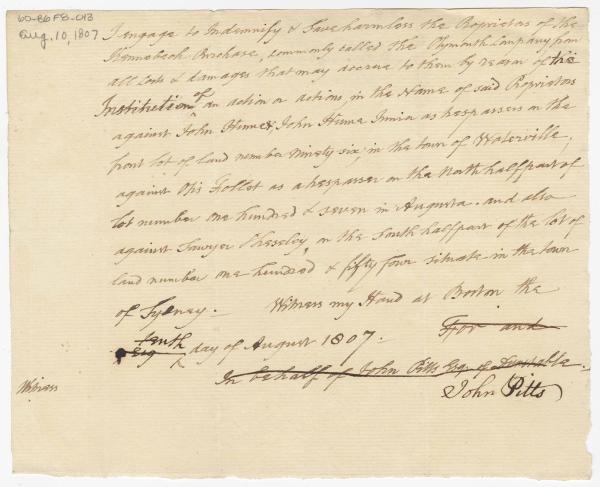 60-86F8-013
Aug. 10, 1807
I engage to Indemnify & Save harmless the Proprietors of the
Kennebeck Purchase, commonly called the Plymouth Company from
all Costs & damages that may accrue to them by reason of the
Institution of an action or actions, in the Name of said Proprietors
against John Hume & John Hume Junia as trespassers on the
front lot of land number Ninety six, in the town of Waterville,
against Otis Follet as a trespasser on the North half part of
lot number one hundred & seven in Augusta. and also
against Sawyer on the South half part of the lot of
land number one hundred & fifty four situate in the town
of Sydney. Witness my Hand at Boston the
For and
tenth
Eig day of August 1807.
In behalf of John Pitts Esq. of Dunstable.
Witness
John Pitts